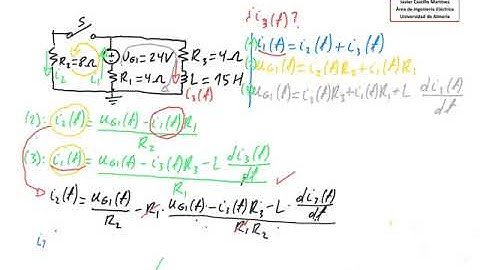 Javier Castillo Martínez
Área de Ingeniería Eléctrica
Universidad de Almería
¿i₃(t)?
S
R₂=8Ω
i₂
i₁
U_G1=24V
R₁=4Ω
R₃=4Ω
L=15H
i₃(t)
i₁(t)=i₂(t)+i₃(t)
u_G1(t)=i₂(t)R₂+i₁(t)R₁
u_G1(t)=i₃(t)R₃+i₁(t)R₁+L di₃(t)/dt
(2): i₂(t)=(u_G1(t)-i₁(t)R₁)/R₂
(3): i₁(t)=(u_G1(t)-i₃(t)R₃-L di₃(t)/dt)/R₁
i₂(t)=u_G1(t)/R₂-R₁·(u_G1(t)-i₃(t)R₃-L·di₃(t)/dt)/(R₁R₂)